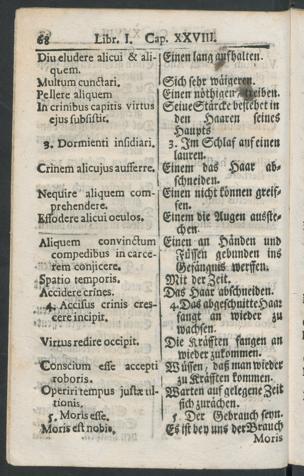 68 Libr. I. Cap. XXVIII.
Diu eludere alicui & ali-
quem.
Multum cunctari.
Pellere aliquem
In crinibus capitis virtus
ejus subsistit.
3. Dormienti insidiari.
Crinem alicujus aufferre.
Nequire aliquem com-
prehendere.
Effodere alicui oculos.
Aliquem convinctum
compedibus in carce-
rem conjicere.
Spatio temporis.
Accidere crines.
4. Accisus crinis cres-
cere incipit.
Virtus redire occipit.
Conscium esse accepti
roboris.
Operiri tempus justæ ul-
tionis.
5. Moris esse.
Moris est nobis,
Einen lang aufhalten.
Sich sehr wäigeren.
Einen nöthigen / treiben.
Seine Stärcke bestehet in
den Haaren seines
Haupts
3. Im Schlaf auf einen
lauren.
Einem das Haar ab-
schneiden.
Einen nicht können greif-
fen.
Einem die Augen ausste-
chen.
Einen an Händen und
Füssen gebunden ins
Gefängnis werffen.
Mit der Zeit.
Das Haar abschneiden.
4. Das abgeschnitte Haar
fangt an wieder zu
wachsen.
Die Kräfften fangen an
wieder zukommen.
Wüssen, daß man wieder
zu Kräfften kommen.
Warten auf gelegene Zeit
sich zurächen.
5. Der Gebrauch seyn.
Es ist bey uns der Brauch
Moris